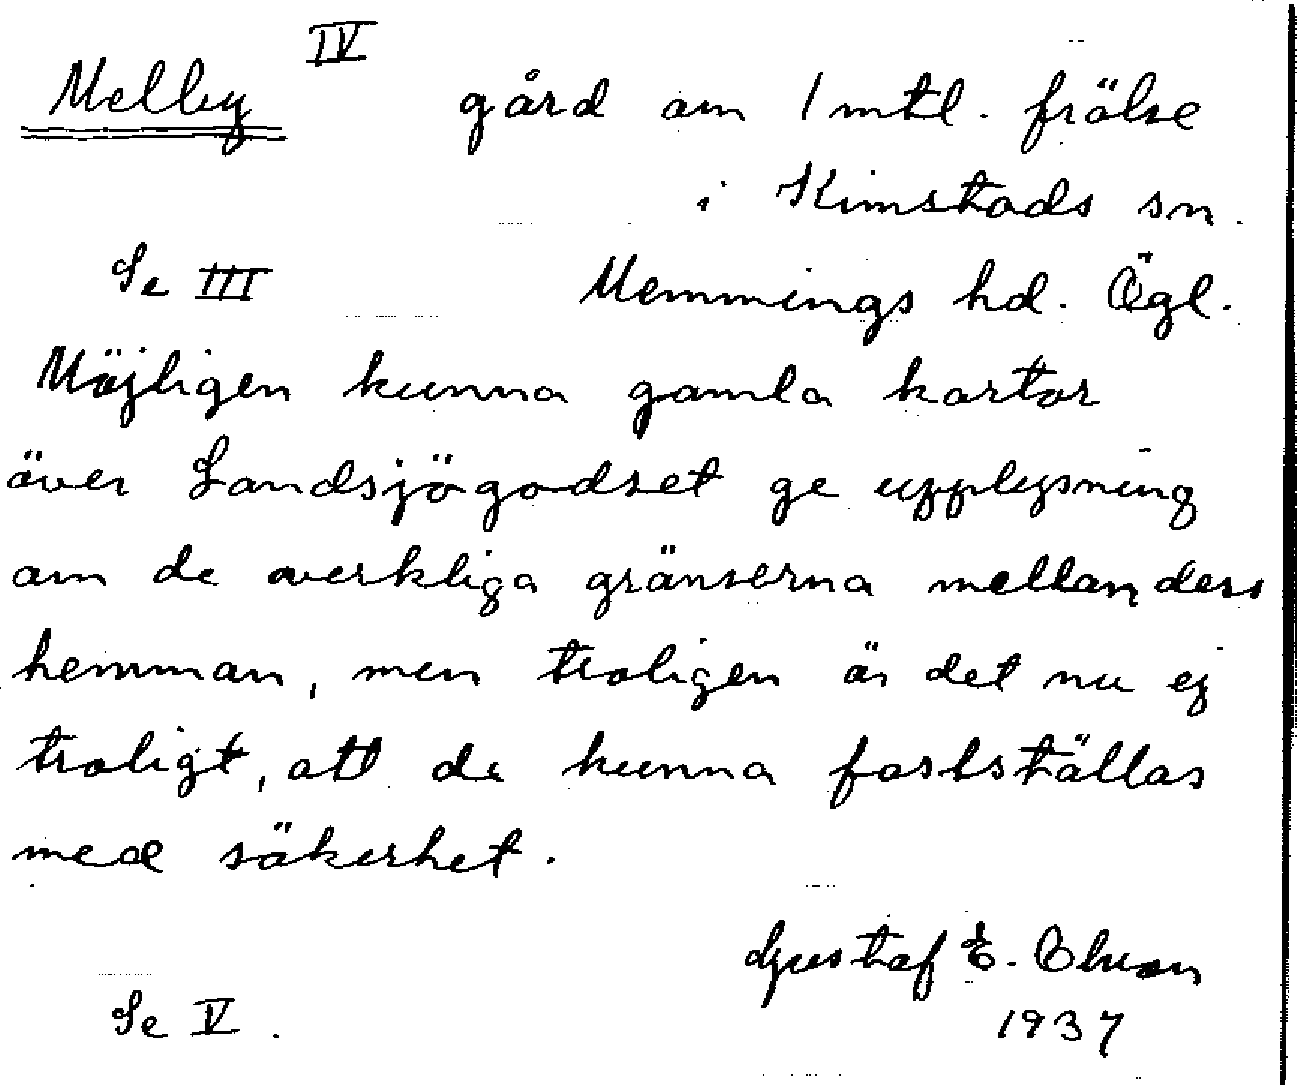 IV
Melby gård om 1 mtl. frälse
i Kimstads sn.
Se III Memmings hd. Ögl.
Möjligen kunna gamla kartor
över Landsjögodset ge upplysning
om de överkliga gränserna mellan dess
hemman, men troligen är det nu ej
troligt, att de kunna fastställas
med säkerhet.
Gustaf E.
Se V. 1937